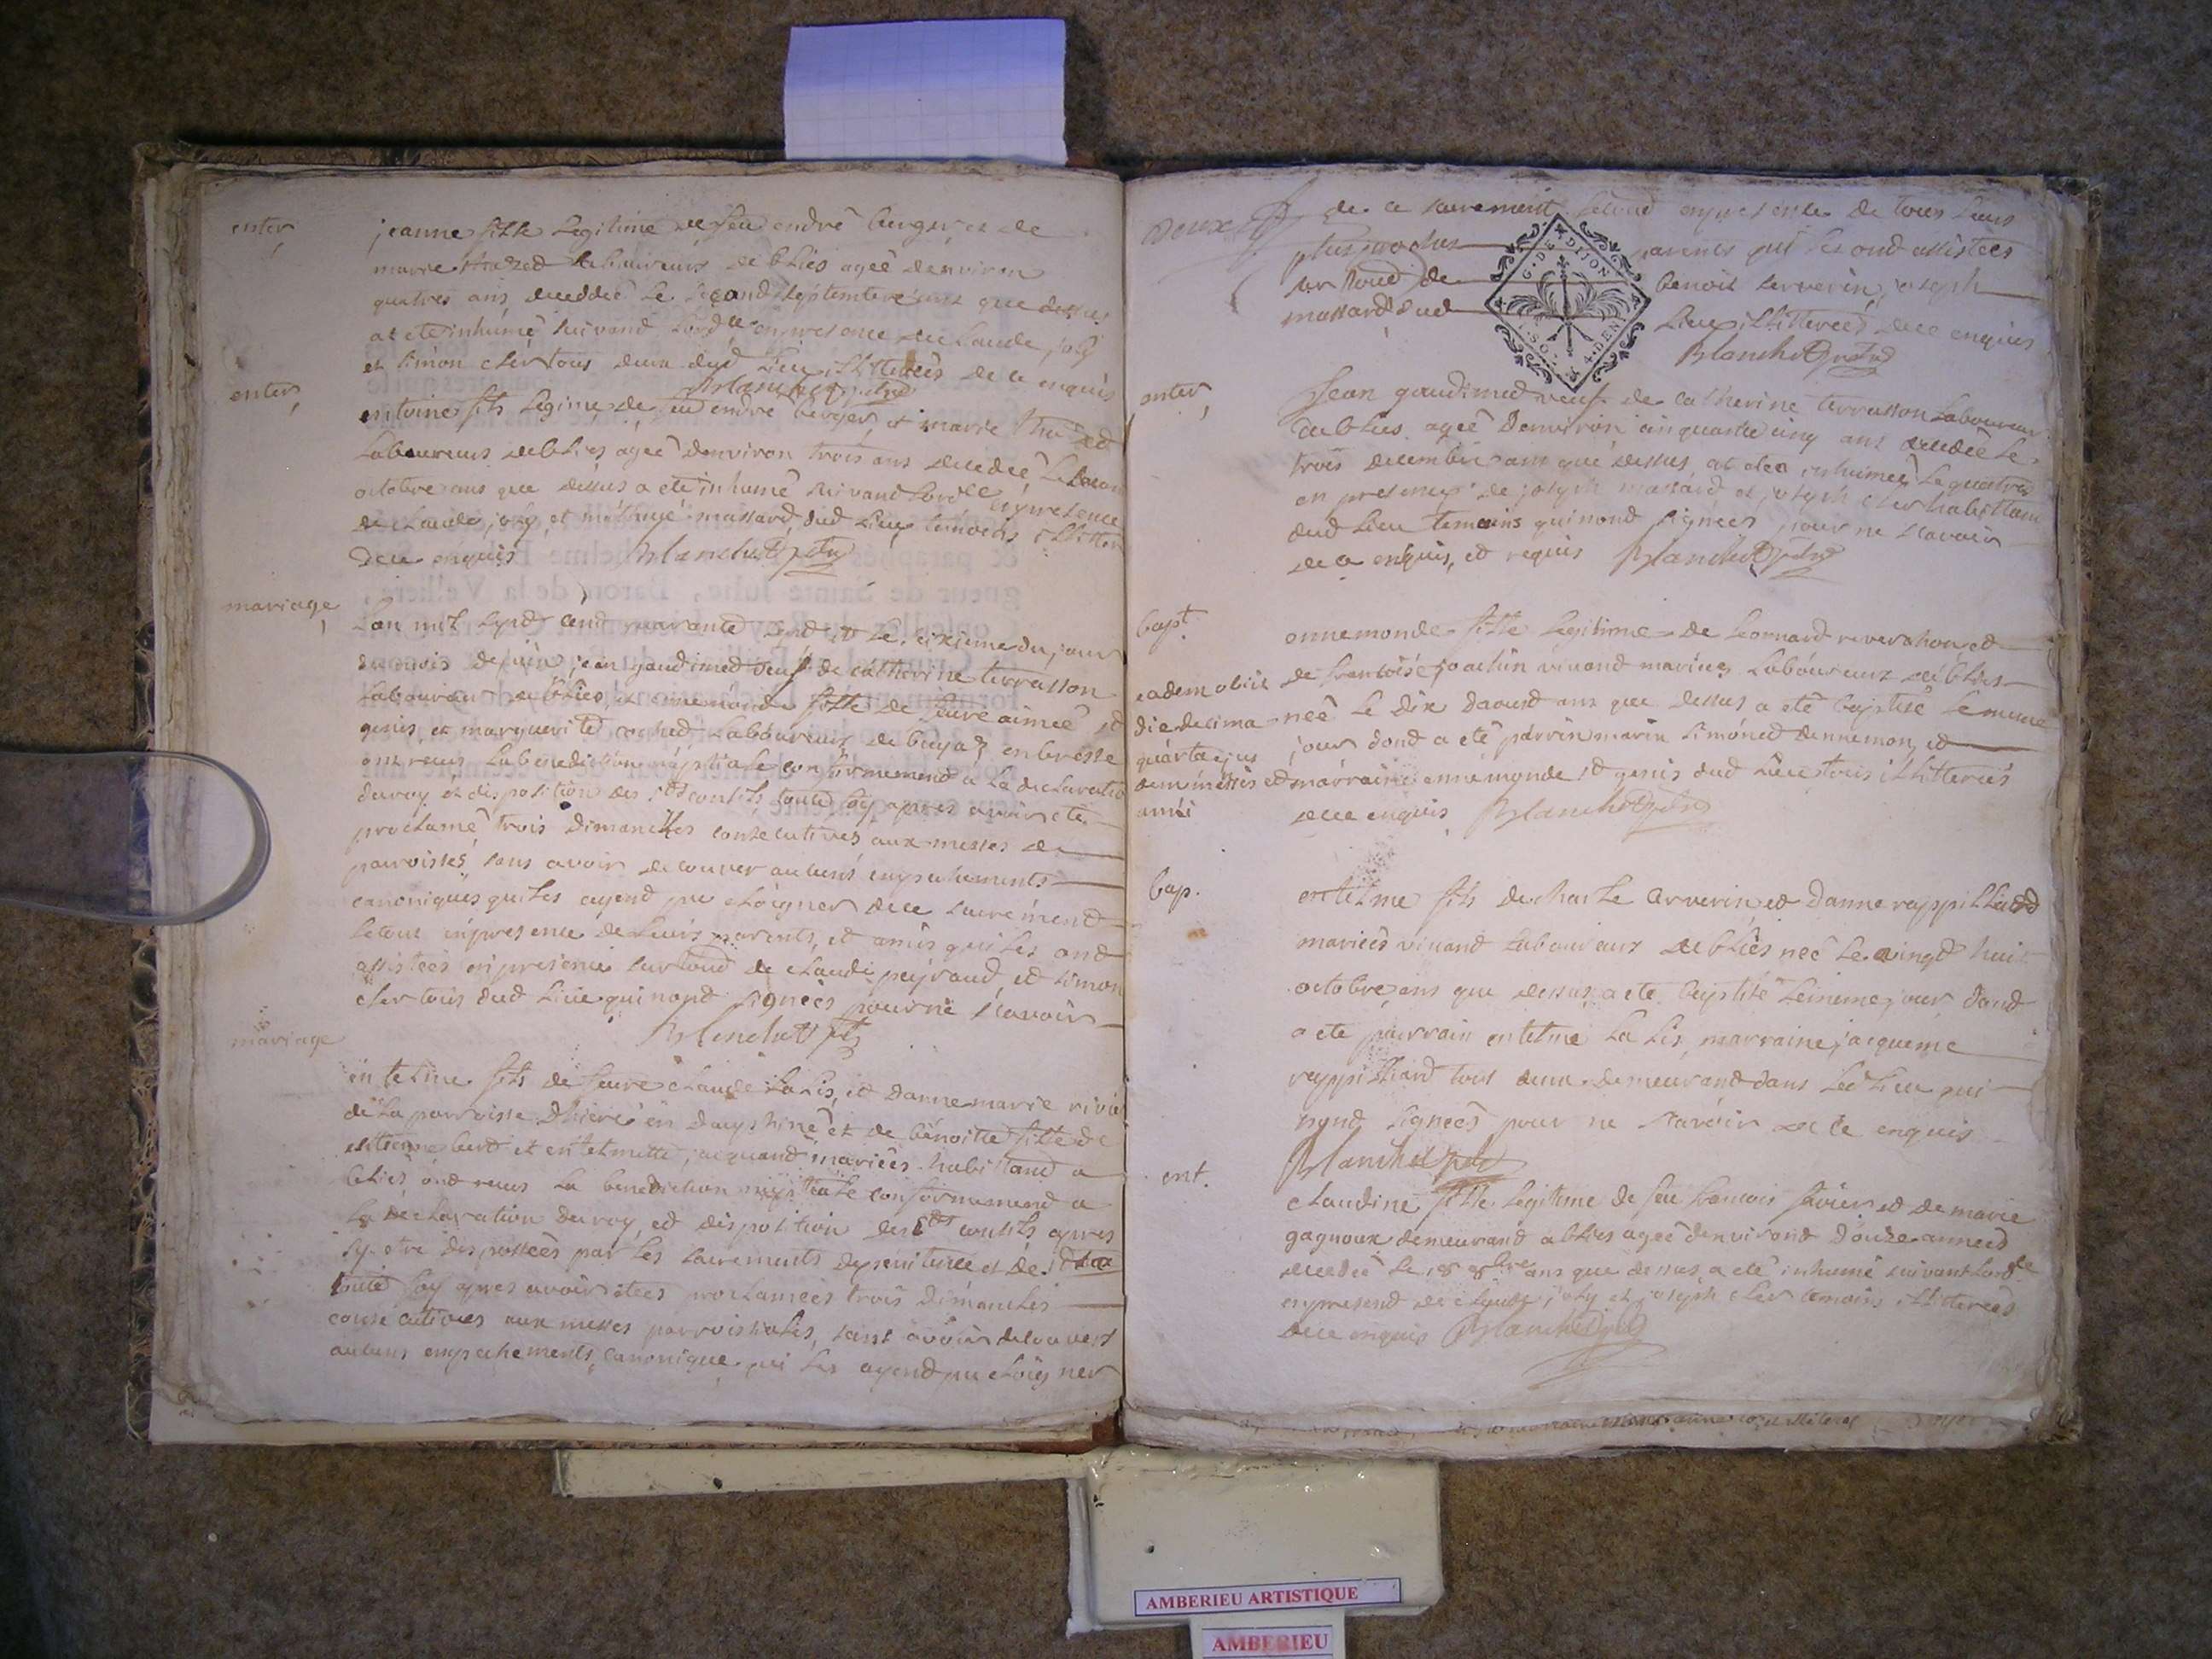 enter
jeanne fille Legitime de feu endré berger, et de
marie thozed Laboureurs de blies ageé denviron
quatres ans, deceddeé Le second septembre ans que dessus
at eté inhumé suivand Lordce en presence de Claude joly
et simon cler tous deux dud Lieu illitereés de ce enquis
Blanchet ptre
enter
entoine fils Legime de feu endré berger, et marie
Laboureurs de blies ageé denviron trois ans decedeé Le
octobre ans que dessus a eté inhumé suivand Lordce en presence
de Claude joly, et massard, dud Lieu temoins illiter
de ce enquis Blanchet ptre
mariage
Lan mil sept cend quarante sept et Le sixieme du jour
du mois de juin jean gaudimed veuf de catherine terrasson
Laboureur de blies, et ennemonde fille de feu aimeé st
genis, et marguerite cached Laboureurs de en bresse
ont receus La benediction nuptiale conformemend a La declaration
du roy et disposition des sts conciles toute foy apres avoir eté
proclamé trois dimanches consecutives aux messes de
parroisses sans avoir decouver aucuns empechements
canoniques qui les ayend pu eloigner de ce sacremend
Le tout en presence de Leurs parents, et amis qui Les ond
assistees en presence surtoud de claude peyraud, et simon
cler tous dud Lieu qui nond signeés pour ne scavoir
Blanchet ptre
mariage
entelme fils de feu claude La Lis, et danne marie
de La parroisse dhiere en dauphiné et de benoitte fille de
estienne berd et entelmette jacquand marieés habittand a
blies ond receus La benediction nuptiale conformemend a
La declaration du roy, et disposition des sts conciles apres
sy etre disposseés par Les sacrements de penitence et de
toute foy apres avoir eteés proclameés trois dimanches
consecutives aux messes parroissiales, sans avoir decouvert
aucuns empechements canonique qui Les ayend pu eloigner
deux
de ce sacrement Letoud en presence de tous Leurs
plus proches parents qui Les ond assisteés
surtoud de benoit serverin, joseph
massard dud Lieu illitereés de ce enquis
Blanchet ptre
G. DE DIJON
SOL
4. DEN
enter
Jean gaudimed veuf de catherine terrasson Laboureur
de blies ageé denviron cinquante cinq ans decedeé Le
trois decembre ans que dessus, at eteé inhumeé Le quatres
en presence de joseph massard et joseph cler habittans
dud Lieu temoins qui nond signeés pour ne scavoir
de ce enquis, et requis Blanchet ptre
bapt.
ennemonde fille Legitime de Leonnard reverchon et
de francoise joachin vivand marieés Laboureurs de blies
neé Le dix daoust ans que dessus a eté baptisé Le meme
jour dond a eté parrin marin simoned dennemon, et
marraine ennemonde st genis dud Lieu tous illitereés
de ce enquis Blanchet ptre
eadem obiit
die decima
quarta ejus
dem mensis et
anni
bap.
entelme fils de charle serverin et danne rappilliard
marieés vivand Laboureurs de blies neé Le vingt huit
octobre ans que dessus, a eté baptisé Le meme jour dond
a eté parrain entelme La Lis, marraine jacqueme
rappilliard tous deux demeurand dans Led Lieu qui
nond signeés pour ne scavoir de ce enquis
Blanchet ptre
ent.
claudine fille Legitime de feu francois et de marie
gagnoux demeurand a blies ageé denvirond douze anneés
decedeé Le 18 8bre ans que dessus, a eté inhumé suivant Lordce
en presend de claude joly et joseph cler temoins illitereés
de ce enquis Blanchet ptre
AMBERIEU ARTISTIQUE
AMBERIEU